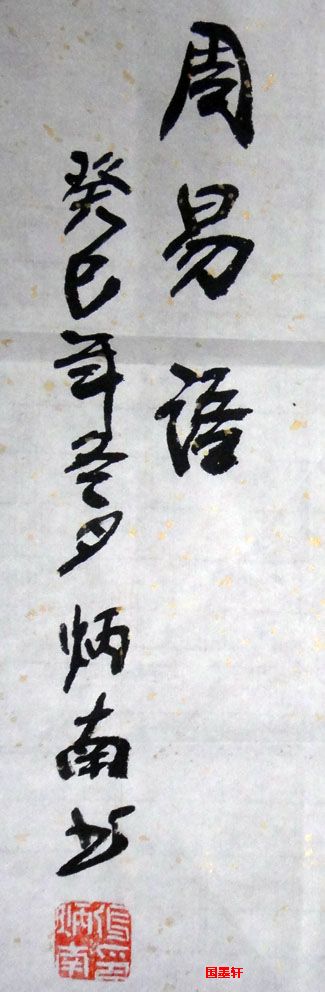 周易语
癸巳年冬月炳南书
炳南
国墨轩